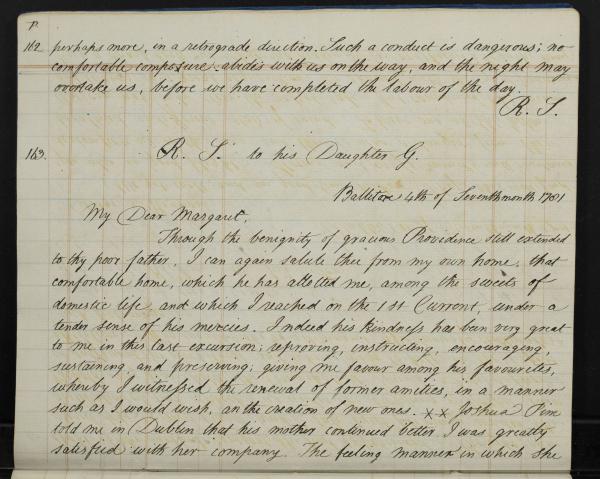 P.
162 perhaps more, in a retrograde direction. Such a conduct is dangerous; no
comfortable composure abides with us on the way, and the night may
overtake us, before we have completed the labour of the day.
R. S.
163. R. S. to his Daughter G.
Ballitore 4th of Seventhmonth 1781
My Dear Margaret,
Through the benignity of gracious Providence still extended
to thy poor father, I can again salute thee from my own home, that
comfortable home, which he has allotted me, among the sweets of
domestic life, and which I reached on the 1st Current, under a
tender sense of his mercies. Indeed his kindness has been very great
to me in this last excursion; reproving, instructing, encouraging,
sustaining, and preserving; giving me favour among his favourites,
whereby I witnessed the renewal of former amities, in a manner
such as I would wish, an the creation of new ones. x x Joshua
told me in Dublin that his mother continued better, I was greatly
satisfied with her company. The feeling manner in which she